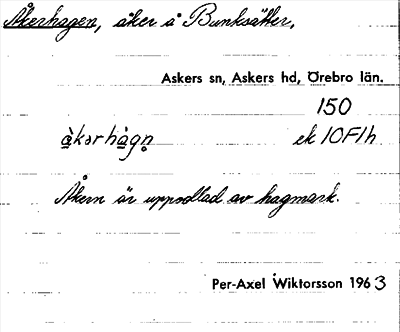 Åkerhagen, åker å Bunksätter,
Askers sn, Askers hd, Örebro län.
150
àkərhàgn̥ ek 10F1h
Åkern är uppodlad av hagmark.
Per-Axel Wiktorsson 1963